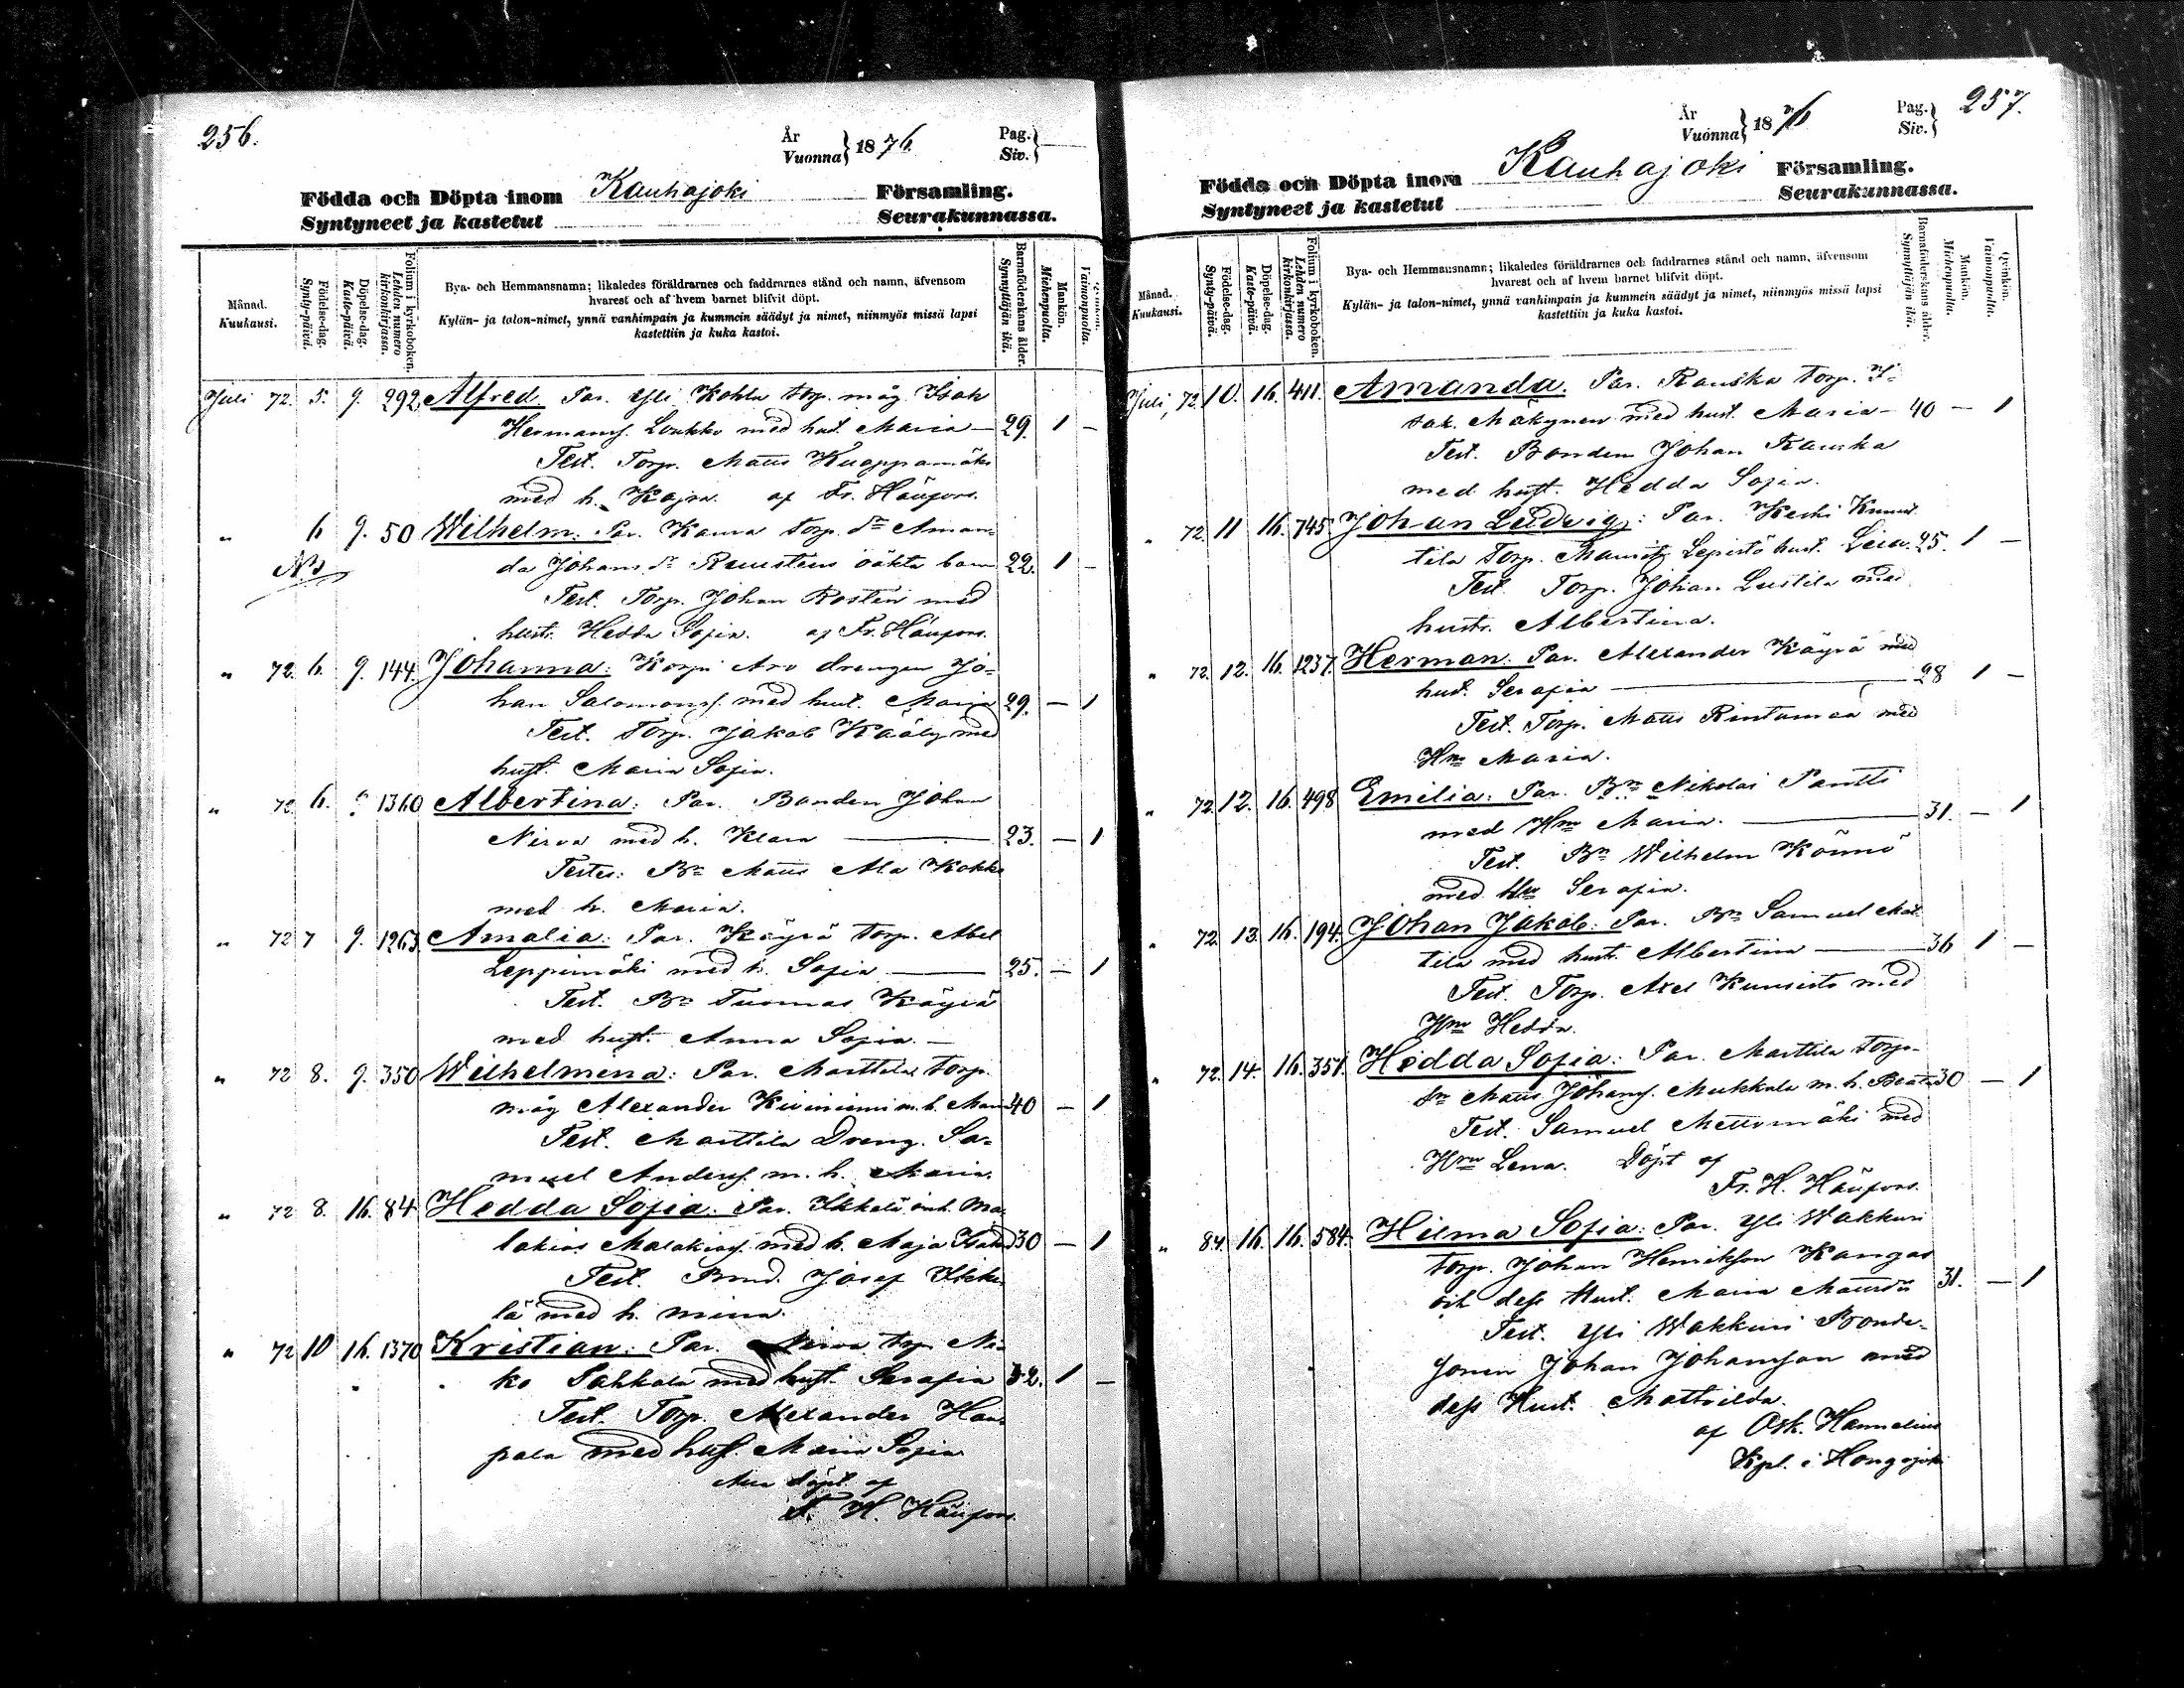 256.
År
Vuonna } 1876.
Pag.
Siv. }
Födda och Döpta inom Kauhajoki Församling.
Syntyneet ja kastetut Seurakunnassa.
Månad.
Kuukausi.
Födelse-dag.
Synty-päivä.
Döpelse-dag.
Kaste-päivä.
Folium i kyrkoboken.
Lehden numero kirkonkirjassa.
Bya- och Hemmansnamn; likaledes föräldrarnes och faddrarnes stånd och namn, äfvensom
hvarest och af hvem barnet blifvit döpt.
Kylän- ja talon-nimet, ynnä vanhimpain ja kummein säädyt ja nimet, niinmyös missä lapsi
kastettiin ja kuka kastoi.
Barnaföderskans ålder.
Synnyttäjän ikä.
Mankön.
Miehenpuolta.
Qvinkön.
Vaimonpuolta.
Juli 72. 5. 9. 292 Alfred. Par. Yli Kohla torp. måg Isak
Hermans. Loukko med hust. Maria 29. 1 –
Test. Torp. Matts Knappamäki
med h. Kajsa. af Fr. Häufors.
" 6 9. 50 Wilhelm: Par. Kaura torp. dr Aman-
NB da Johans dr Ruusteus oäkta barn 22. 1 –
Test. Torp. Johan Rostén med
hustr. Hedda Sofia. af Fr. Häufors.
" 72. 6. 9. 144 Johanna: Korpi Aro drengen Jo-
han Salomons. med hust. Maria 29. – 1
Test. Torp. Jakob Kääly med
hust. Maria Sofia.
" 72. 6. 9 1360 Albertina: Par. Bonden Johan
Nirva med h. Klara 23. – 1
Testes: Bn Matts Ala Kokko
med h. Maria.
" 72 7 9. 1263 Amalia: Par. Käyrä Torp. Abel
Leppimäki med h. Sofia 25. – 1
Test. Bn Tuomas Käyrä
med hust. Anna Sofia. –
" 72 8. 9. 350 Wilhelmina: Par. Marttila torp.
måg Alexander Kiviniemi m. h. Maria 40 – 1
Test. Marttila Dreng. Sa-
muel Anders. m. h. Maria.
" 72 8. 16. 84 Hedda Sofia. Par. Ikkelä inh. Ma-
lakias Malakias. med h. Maja 30 – 1
Test. Bond. Josef Ikke-
lä med h. Mina.
" 72 10 16. 1370 Kristian: Par. Nirva torp. Ni-
ko Pahkala med hust. Serafia 32. 1 –
Test. Torp. Alexander Haa-
pala med hust. Maria Sofia
döpt af
F. H. Häufors.
År
Vuonna } 1876
Pag.
Siv. } 257.
Födda och Döpta inom Kauhajoki Församling.
Syntyneet ja kastetut Seurakunnassa.
Månad.
Kuukausi.
Födelse-dag.
Synty-päivä.
Döpelse-dag.
Kaste-päivä.
Folium i kyrkoboken.
Lehden numero kirkonkirjassa.
Bya- och Hemmansnamn; likaledes föräldrarnes och faddrarnes stånd och namn, äfvensom
hvarest och af hvem barnet blifvit döpt.
Kylän- ja talon-nimet, ynnä vanhimpain ja kummein säädyt ja nimet, niinmyös missä lapsi
kastettiin ja kuka kastoi.
Barnaföderskans ålder.
Synnyttäjän ikä.
Mankön.
Miehenpuolta.
Qvinkön.
Vaimonpuolta.
Juli, 72. 10. 16. 411. Amanda. Par. Rauska Torp. I-
sak Mäkynen med hust. Maria – 40 – 1
Test. Bonden Johan Rauska
med hust. Hedda Sofia.
" 72. 11 16. 745. Johan Ludvig: Par. Keski Knuut-
tila Torp. Mauritz Lepistö hust. Lisa 25. 1 –
Test. Torp. Johan Luttila med
hustr. Albertina.
" 72. 12. 16. 1237. Herman: Par. Alexander Käyrä med
hust. Serafia 28 1 –
Test. Torp. Matts Rintamaa med
Hm Maria.
" 72. 12. 16. 498 Emilia: Par. Bn Nikolai Pantti
med Hm Maria. 31. – 1
Test. Bn Wilhelm Könnö
med Hm Serafia.
" 72. 13. 16. 194. Johan Jakob: Par. Bn Samuel Mat-
tila med hust. Albertina 36 1 –
Test. Torp. Axel Kunnisto med
Hm Hedda.
" 72. 14. 16. 351. Hedda Sofia: Par. Marttila torp-
sn Matts Johans. Mukkala m. h. Beata 30 – 1
Test. Samuel Mettomäki med
Hm Lena. Döpt af
Fr. H. Häufors.
" 84. 16. 16. 584. Hilma Sofia: Par. Yli Wakkuri
Torp. Johan Henriksson Kangas
och dess Hust. Maria 31. – 1
Test. Yli Wakkuri Bonde-
sonen Johan Johansson med
dess Hust. Mathilda.
af Osk. Hannelius
Kpl. i Hongojoki